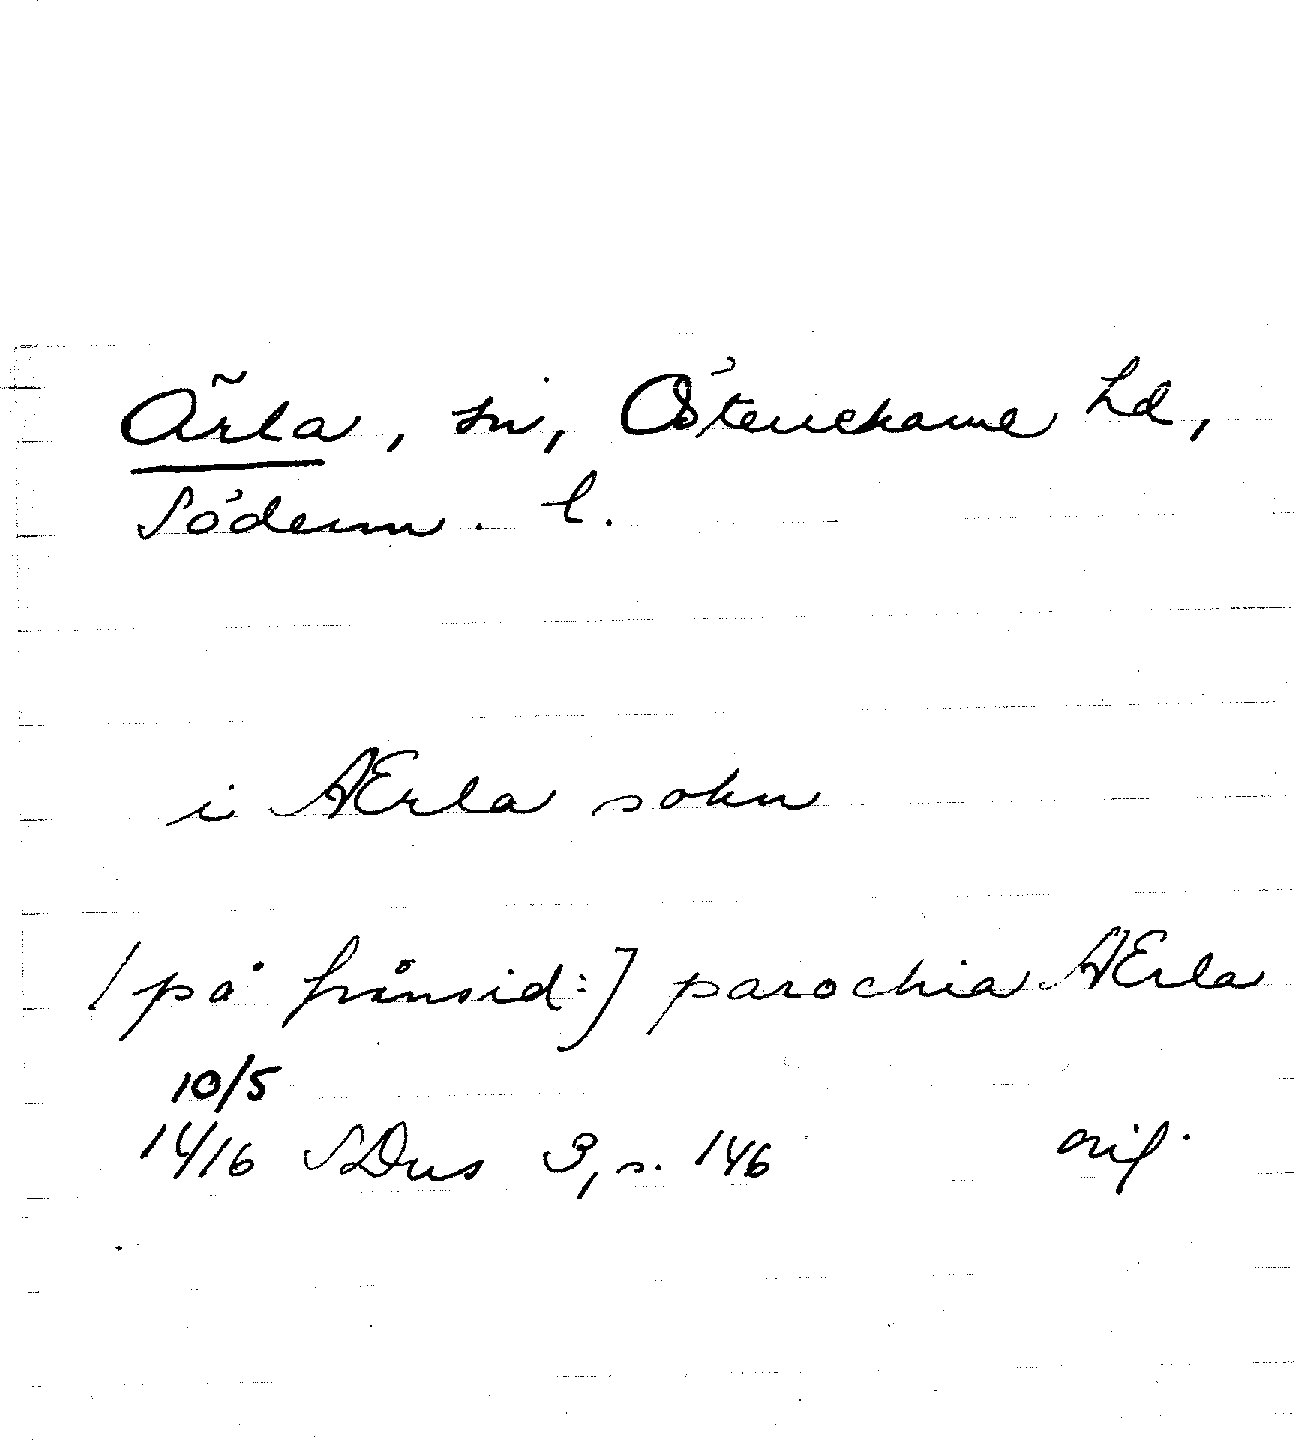 Ärla, sn, Österrekarne hd,
Söderm. l.
i ÆErla sokn
[på frånsid:] parochia ÆErla
10/5
1416 SDns 3, s. 146 orig.